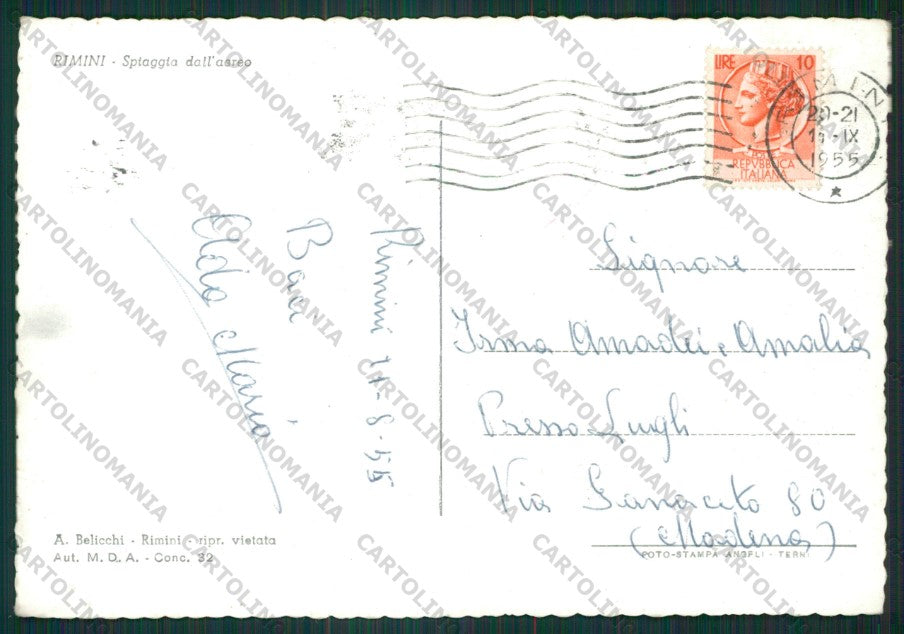 RIMINI - Spiaggia dall'aereo
LIRE 10
REPVBBLICA
ITALIANA
20-21
IX
1955
Rimini 11-8-55
Baci
Ada Maria
Signore
Irma Amadei e Amalia
Presso Lugli
Via Ganaceto 80
(Modena)
A. Belicchi - Rimini - ripr. vietata
Aut. M. D. A. - Conc. 32
FOTO-STAMPA ANGELI - TERNI
CARTOLINOMANIA